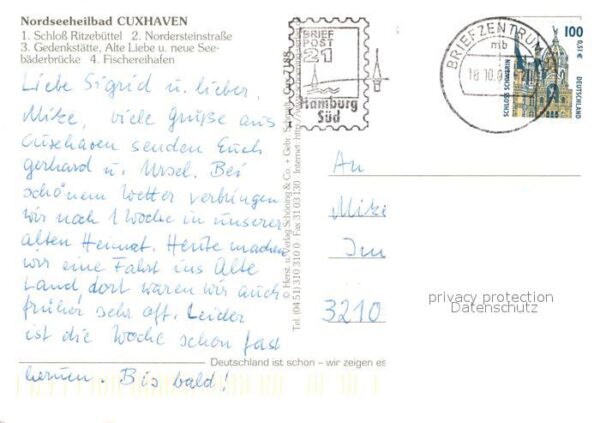 Nordseeheilbad CUXHAVEN
1. Schloß Ritzebüttel 2. Nordersteinstraße
3. Gedenkstätte, Alte Liebe u. neue See-
bäderbrücke 4. Fischereihafen
Liebe Sigrid u. lieber
Mike, viele Grüße aus
Cuxhaven senden Euch
gerhard u. Ursel. Bei
schönem Wetter verbringen
wir noch 1 Woche in unserer
alten Heimat. Heute machen
wir eine Fahrt ins Alte
Land dort waren wir auch
früher sehr oft. Leider
ist die Woche schon fast
herum. Bis bald!
© Herst. u. Verlag Schöning & Co. + Gebr.
Tel. (04 51) 310 310 0 Fax 31 03 130 Internet: http://
BRIEF
POST
21
Hamburg
Süd
BRIEFZENTRUM
mb
18.10.
100
0,51 €
SCHLOSS SCHWERIN
DEUTSCHLAND
An
Mike
3210
privacy protection
Datenschutz
Deutschland ist schön – wir zeigen es